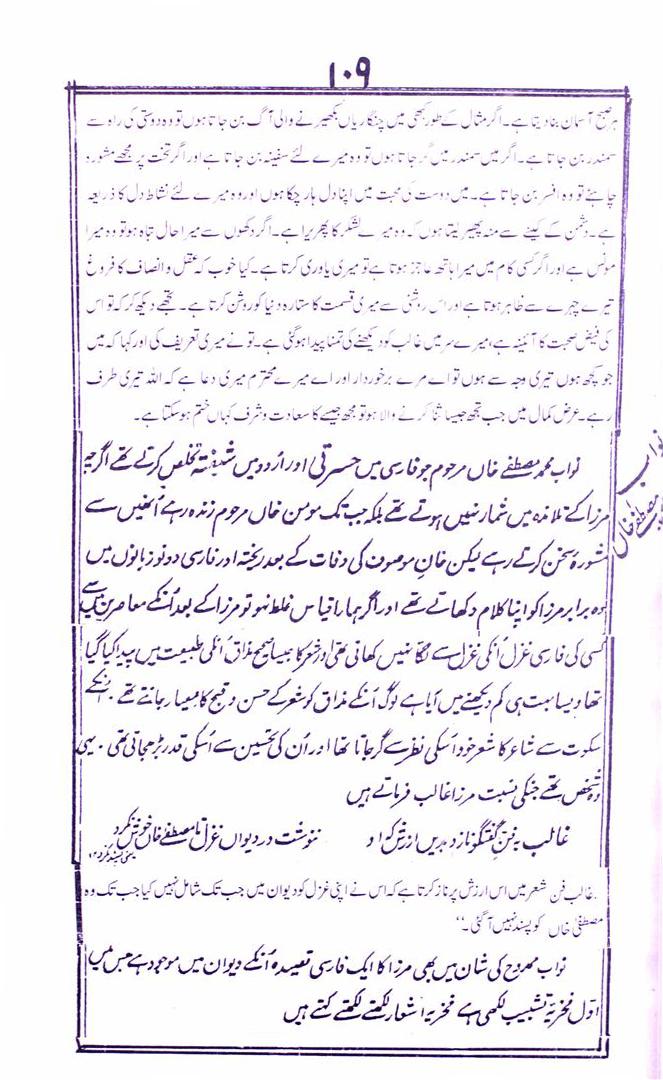 ۱۰۹
ہر صبح آسمان بنا دیتا ہے۔ اگر مثال کے طور کبھی میں چنگاریاں بکھیرنے والی آگ بن جاتا ہوں تو وہ دوستی کی راہ سے
سمندر بن جاتا ہے۔ اگر میں سمندر میں گر جاتا ہوں تو وہ میرے لئے سفینہ بن جاتا ہے اور اگر تخت پر مجھے مشورہ
چاہئے تو وہ افسر بن جاتا ہے۔ میں دوست کی محبت میں اپنا دل ہار چکا ہوں اور وہ میرے لئے نشاط دل کا ذریعہ
ہے۔ دشمن کے کینے سے منہ پھیر لیتا ہوں کہ وہ میرے لشکر کا پھریرا ہے۔ اگر دکھوں سے میرا حال تباہ ہو تو وہ میرا
مونس ہے اور اگر کسی کام میں میرا ہاتھ عاجز ہوتا ہے تو میری یاوری کرتا ہے۔ کیا خوب کہ عقل و انصاف کا فروغ
تیرے چہرے سے ظاہر ہوتا ہے اور اس روشنی سے میری قسمت کا ستارہ دنیا کو روشن کرتا ہے۔ تجھے دیکھ کر کہ تو اس
کی فیض صحبت کا آئینہ ہے، میرے سر میں غالب کو دیکھنے کی تمنا پیدا ہو گئی ہے۔ تو نے میری تعریف کی اور کہا کہ میں
جو کچھ ہوں تیری وجہ سے ہوں تو اے مرے برخوردار اور اے میرے محترم میری دعا ہے کہ اللہ تیری طرف
رہے۔ عرض کمال میں جب تجھ جیسا ثنا کرنے والا ہو تو مجھ جیسے کا سعادت و شرف کہاں ختم ہو سکتا ہے۔
نواب محمد مصطفٰے خاں مرحوم جو فارسی میں حسرتی اور اردو میں شیفتہ تخلص کرتے تھے اگرچہ
نواب
مصطفٰے خاں
مرزا کے تلامذہ میں شمار نہیں ہوتے تھے بلکہ جب تک مومن خاں مرحوم زندہ رہے اُنھیں سے
مشورۂ سخن کرتے رہے لیکن خانِ موصوف کی وفات کے بعد ریختہ اور فارسی دونو زبانوں میں
وہ برابر مرزا کو اپنا کلام دکھاتے تھے اور اگر ہمارا قیاس غلط نہو تو مرزا کے بعد اُنکے معاصرین میں سے
کسی کی فارسی غزل اُنکی غزل سے لگّا نہیں کھاتی تھی اور شعر کا جیسا صحیح مذاق اُنکی طبیعت میں پیدا کیا گیا
تھا ویسا بہت ہی کم دیکھنے میں آیا ہے لوگ اُنکے مذاق کو شعر کے حسن و قبح کا معیار جانتے تھے۔ اُنکے
سکوت سے شاعر کا شعر خود اُسکی نظر سے گر جاتا تھا اور اُن کی تحسین سے اُسکی قدر بڑھ جاتی تھی۔ یہی
وہ شخص تھے جنکی نسبت مرزا غالب فرماتے ہیں
غالب بہ فن گفتگو نازد بدیں ارزش کہ او ننوشت در دیواں غزل تا مصطفٰے خاں خوش نکرد
یعنی پسند نکرد ۱۲
غالب فن شعر میں اس ارزش پر ناز کرتا ہے کہ اس نے اپنی غزل کو دیوان میں جب تک شامل نہیں کیا جب تک وہ
مصطفٰی خاں کو پسند نہیں آ گئی۔"
نواب ممدوح کی شان میں بھی مرزا کا ایک فارسی قصیدہ اُنکے دیوان میں موجود ہے جس میں
اوّل فخریہ تشبیب لکھی ہے فخریہ اشعار لکھتے لکھتے کہتے ہیں